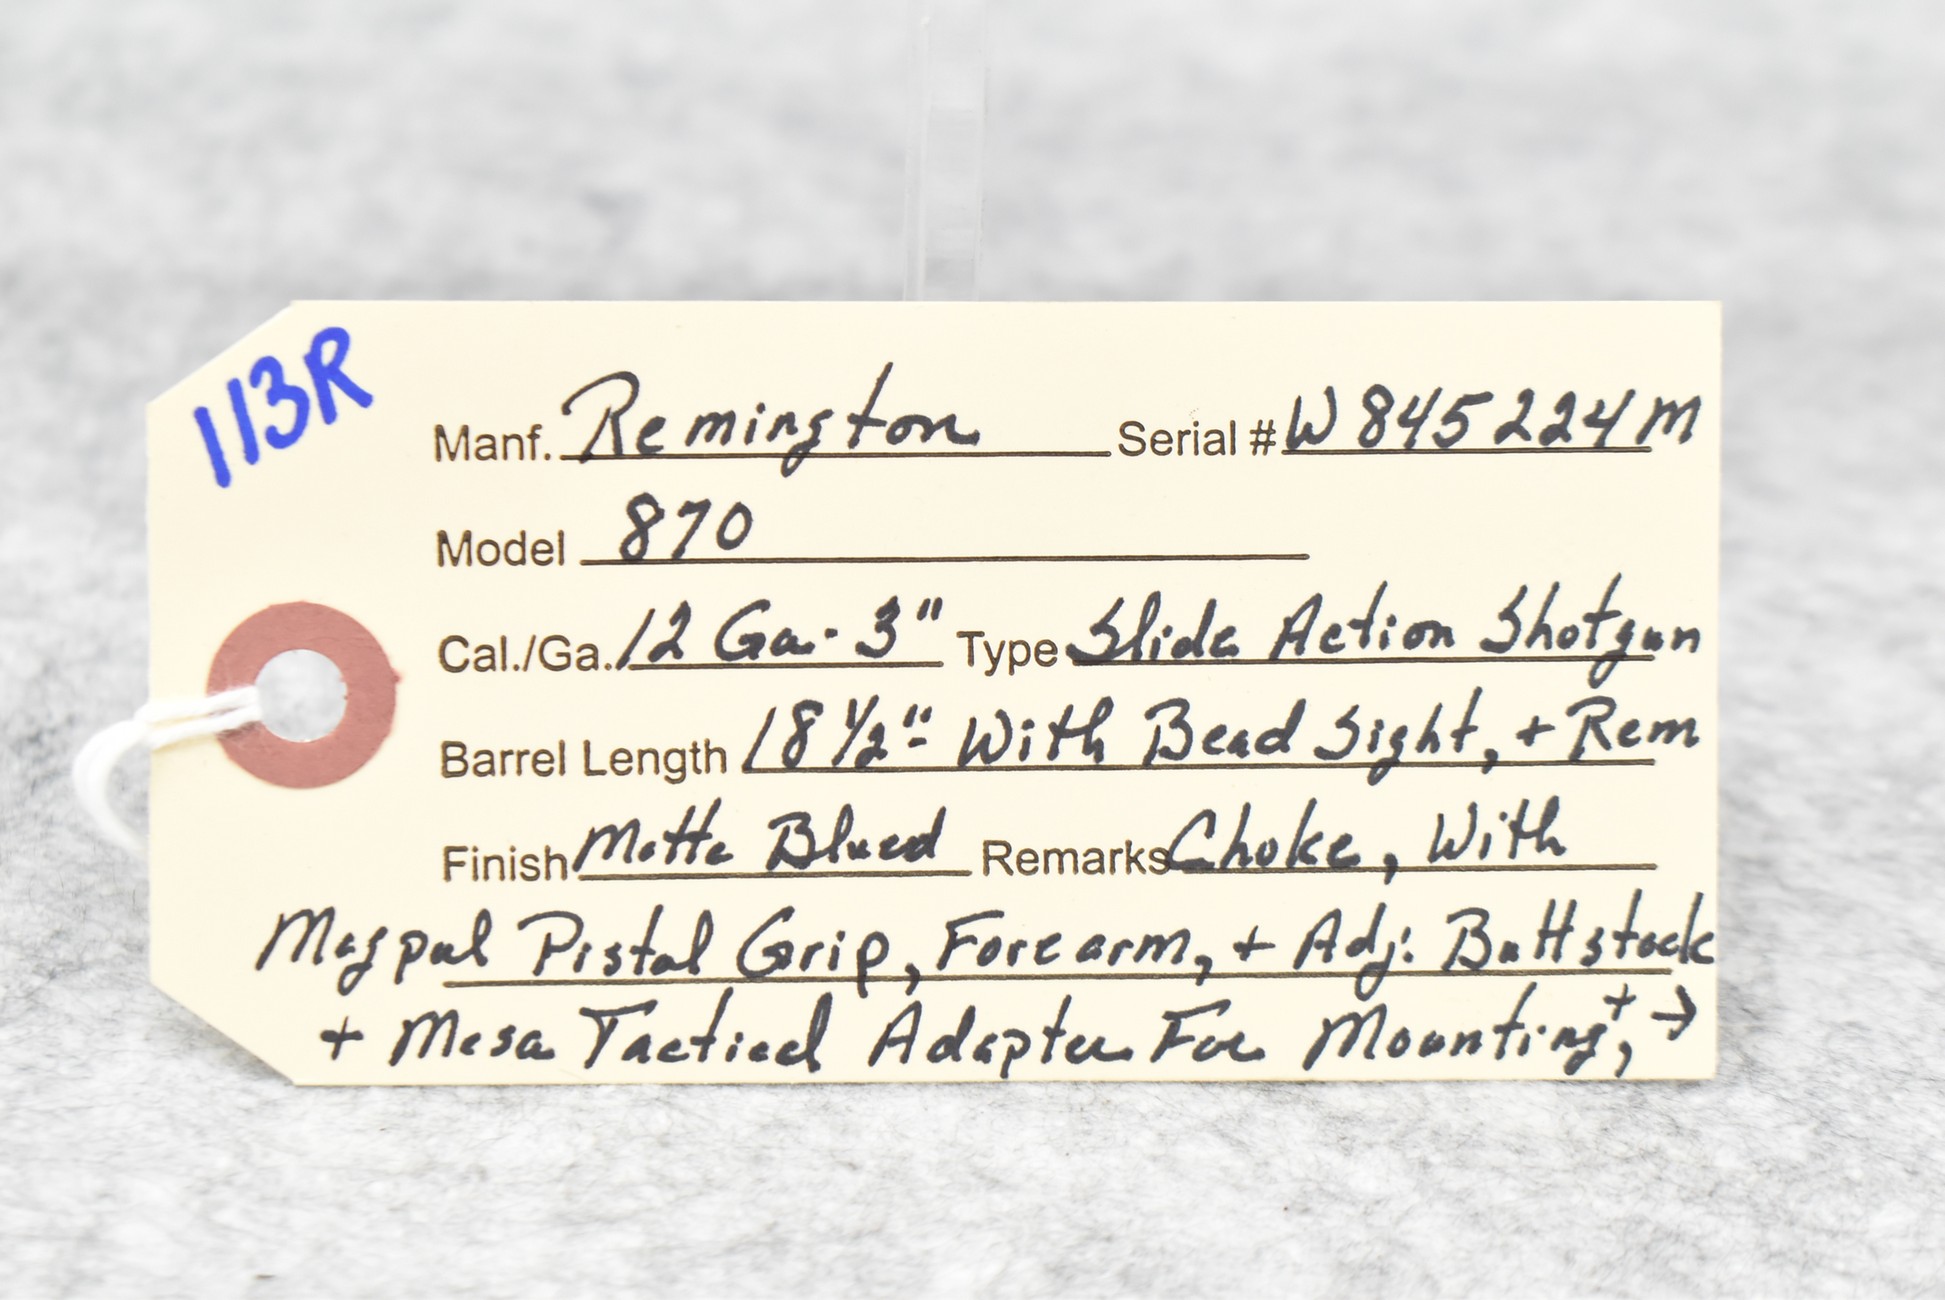 113R
Manf. Remington Serial # W845224M
Model 870
Cal./Ga. 12 Ga. 3" Type Slide Action Shotgun
Barrel Length 18 1/2" With Bead Sight, + Rem
Finish Matte Blued Remarks Choke, With
Magpul Pistol Grip, Forearm, + Adj. Buttstock
+ Mesa Tactical Adapter For Mounting, + →